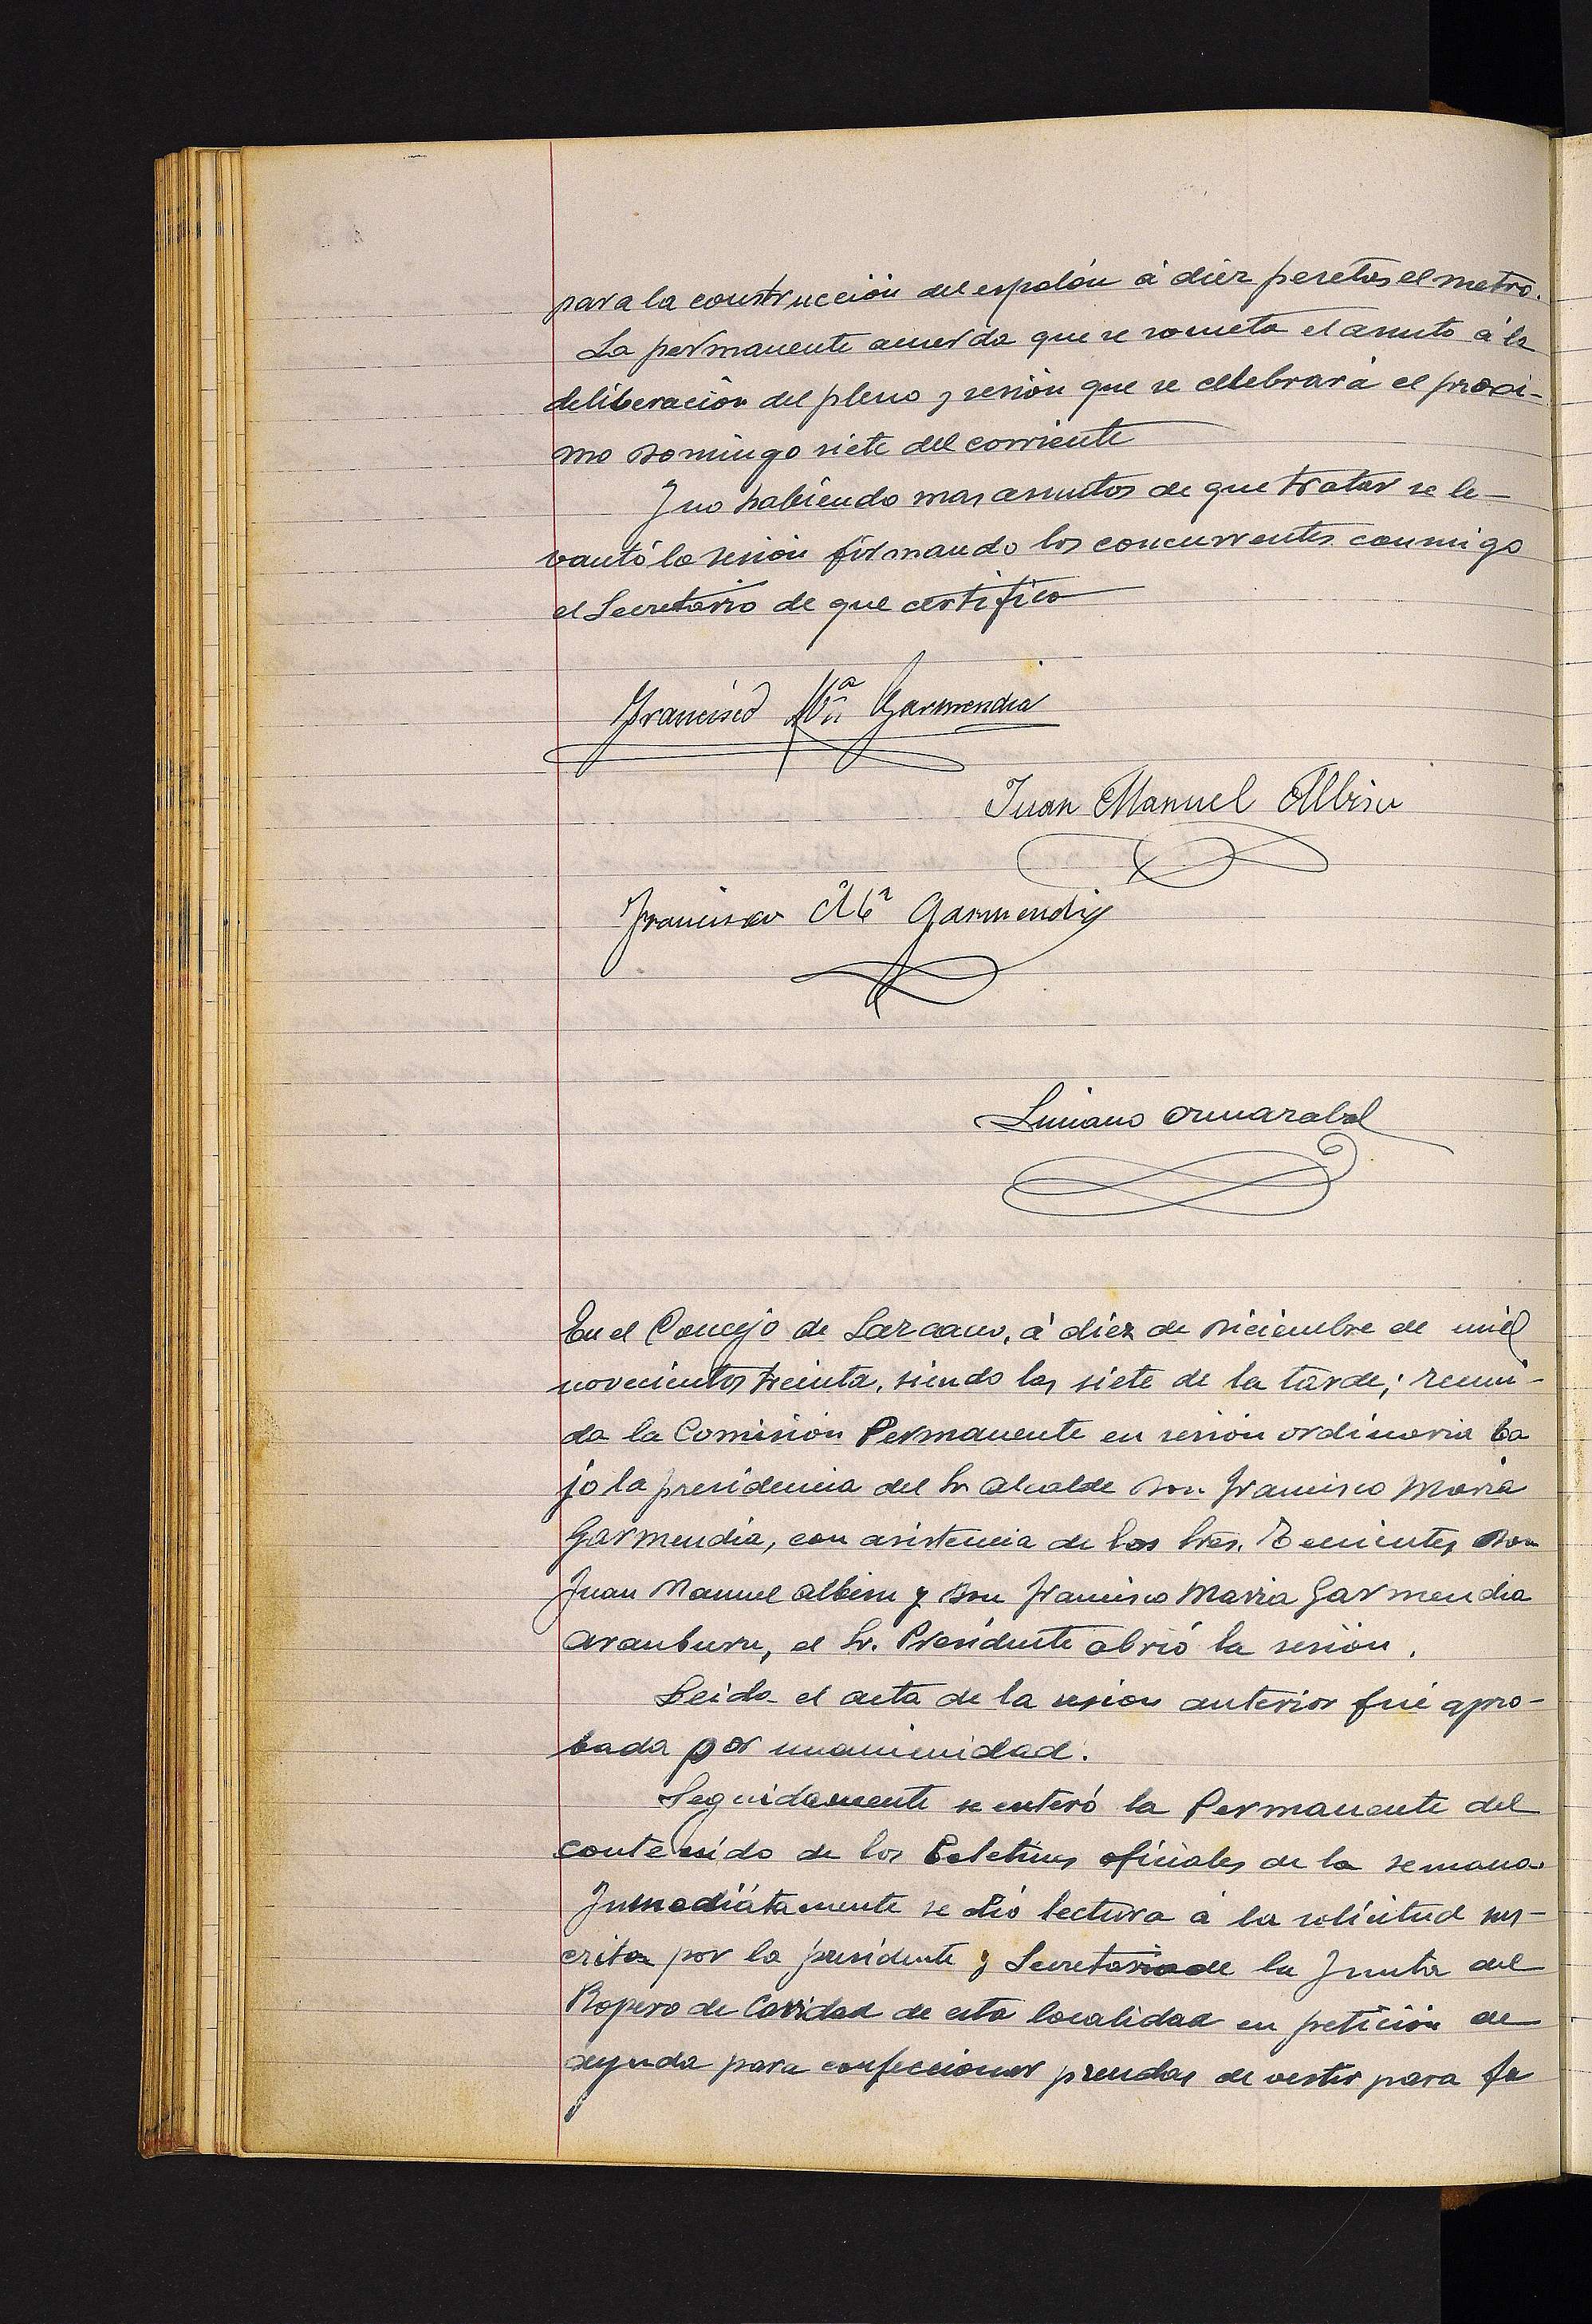 para la construcción del espolón á diez pesetas el metro.
La permanente acuerda que se someta el asunto á la
deliberación del pleno y sesión que se cellebrará el proxi-
mo Domingo siete del corriente
Y no habiendo mas asuntos de que tratar se le-
vantó la sesión firmando los concurrentes conmigo
el Secretario de que certifico
Francisco Mª Garmendia
Juan Manuel Albisu
Francisco Mª Garmendia
Luciano Ormazabal
En el Concejo de Lazcano, á diez de Diciembre de mil
novecientos treinta, siendo las siete de la tarde; reuni-
da la Comisión Permanente en sesión ordinaria ba
jo la presidencia del Sr Alcalde Don Francisco Maria
Garmendia, con asistencia de los Sres. Tenientes Don
Juan Manuel Albisu y Don Francisco Maria Garmendia
Aranburu, el Sr. Presidente abrió la sesión.
Leida el acta de la sesion anterior fué apro-
bada por unanimidad.
Seguidamente se enteró la Permanente del
contenido de los Boletines oficiales de la semana.
Inmediátamente se dió lectura á la solicitud sus-
crita por la presidente y Secretaria de la Junta del
Ropero de Caridad de esta localidad en petición de
ayuda para confeccionar prendas de vestir para fa